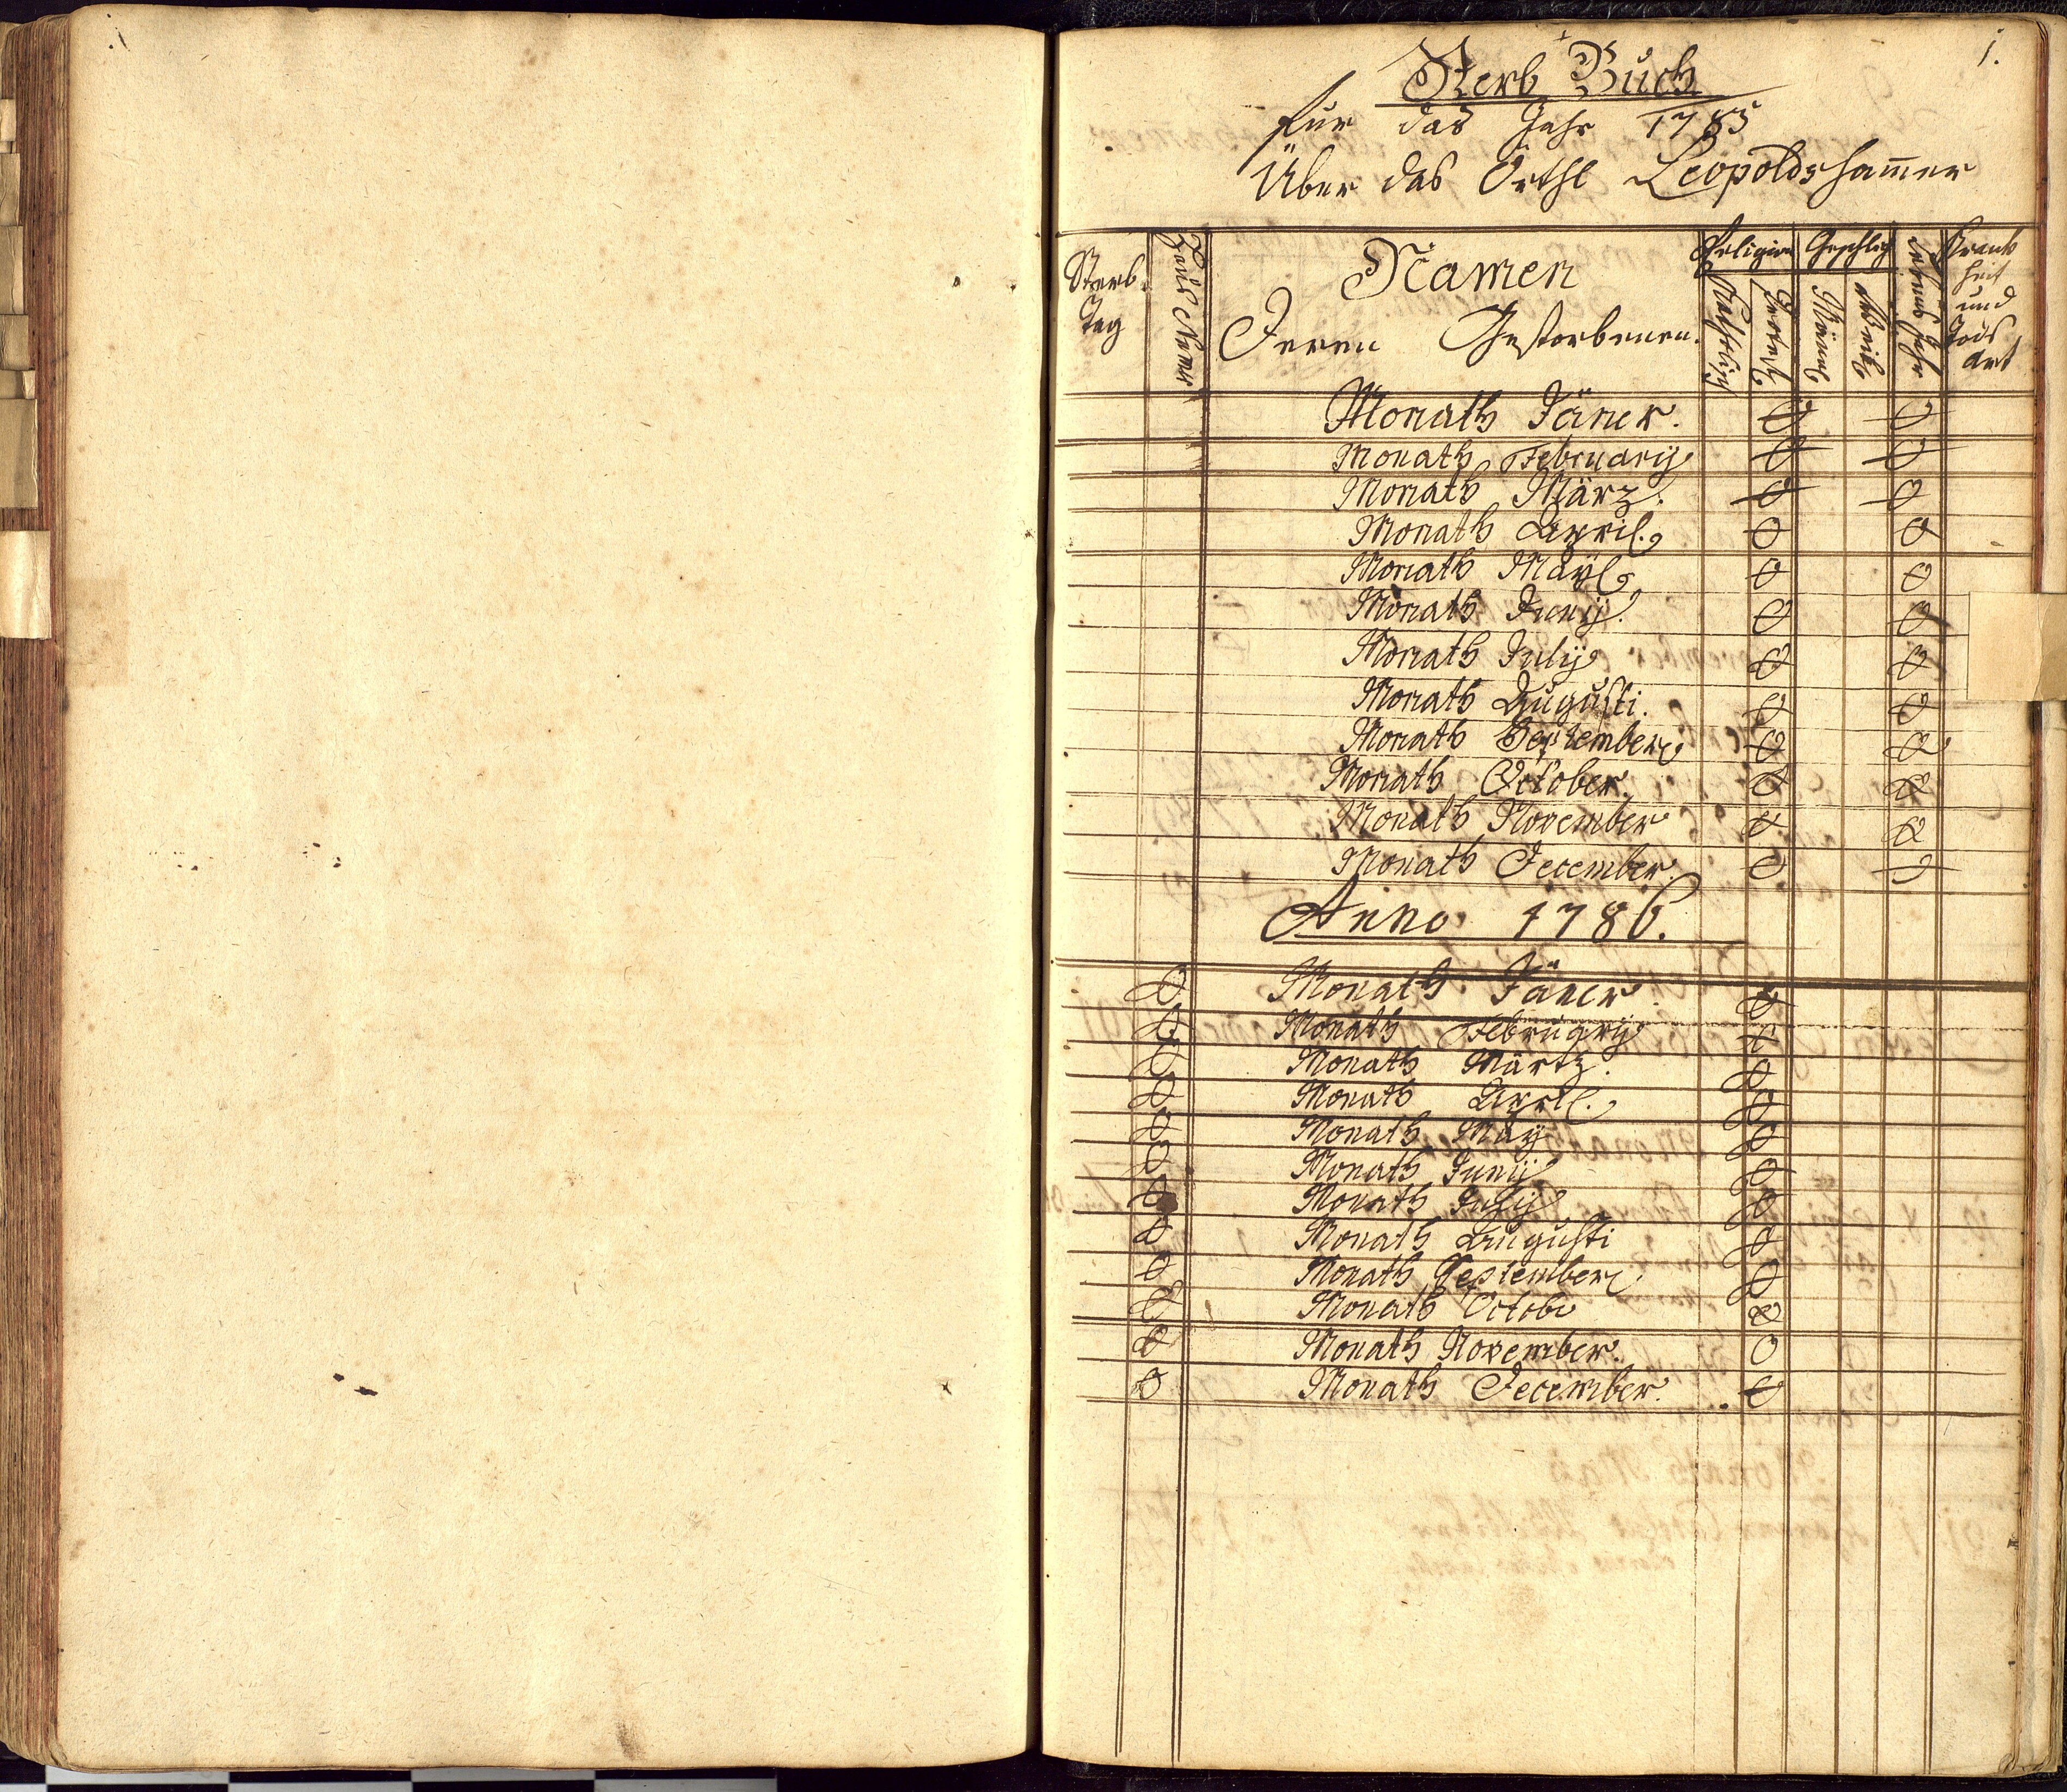 1.
Sterb Buch
für das Jahr 1785
Über das Örthl Leopoldsham̅er
Sterb Tag
Haus Numr
Namen
Deren Gestorbenen.
Religion
Catholisch
Protest
Geschlecht
Männl
Weibl
Lebens Jahr
Krank
heit
und
Tods
Art
Monath Jäner. 0 0
Monath Februarij 0 0
Monath März. 0 0
Monath April. 0 0
Monath Maÿ 0 0
Monath Junij. 0 0
Monath Julij 0 0
Monath Augusti. 0 0
Monath September 0 0
Monath October. 0 0
Monath November 0 0
Monath December. 0 0
Anno 1786.
0 Monath Jäner. 0
0 Monath Februarij 0
0 Monath Märtz. 0
0 Monath April. 0
0 Monath Maÿ 0
0 Monath Junij 0
0 Monath Julij 0
0 Monath Augusti 0
0 Monath September 0
0 Monath Octobr 0
0 Monath November. 0
0 Monath December. 0